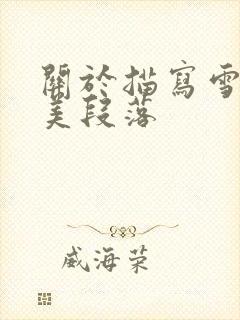 關於描寫雪
美段落
威海榮